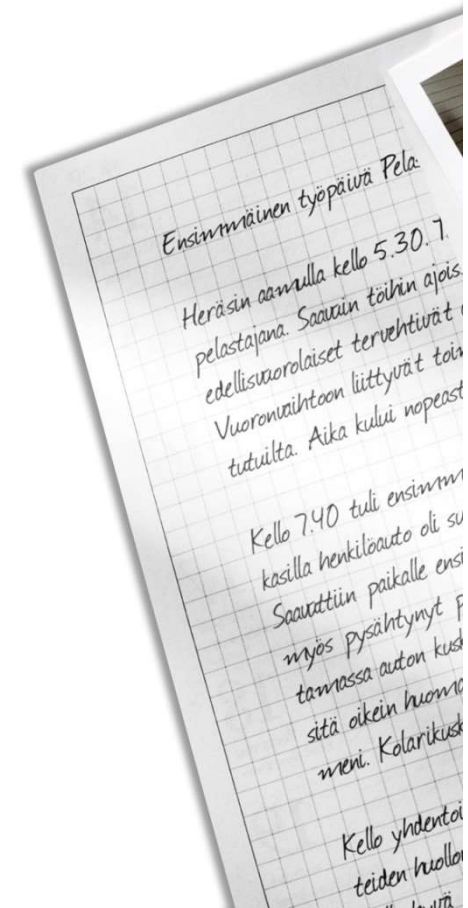 Ensimmäinen työpäivä Pela
Heräsin aamulla kello 5.30. T
pelastajana. Saavuin töihin ajois
edellisvuorolaiset tervehtivät
Vuoronvaihtoon liittyvät toim
tutuilta. Aika kului nopeast
Kello 7.40 tuli ensimm
kasilla henkilöauto oli su
Saavuttiin paikalle ensi
myös pysähtynyt p
tamassa auton kusk
sitä oikein huoma
meni. Kolarikusk
Kello yhdentoi
teiden huollo